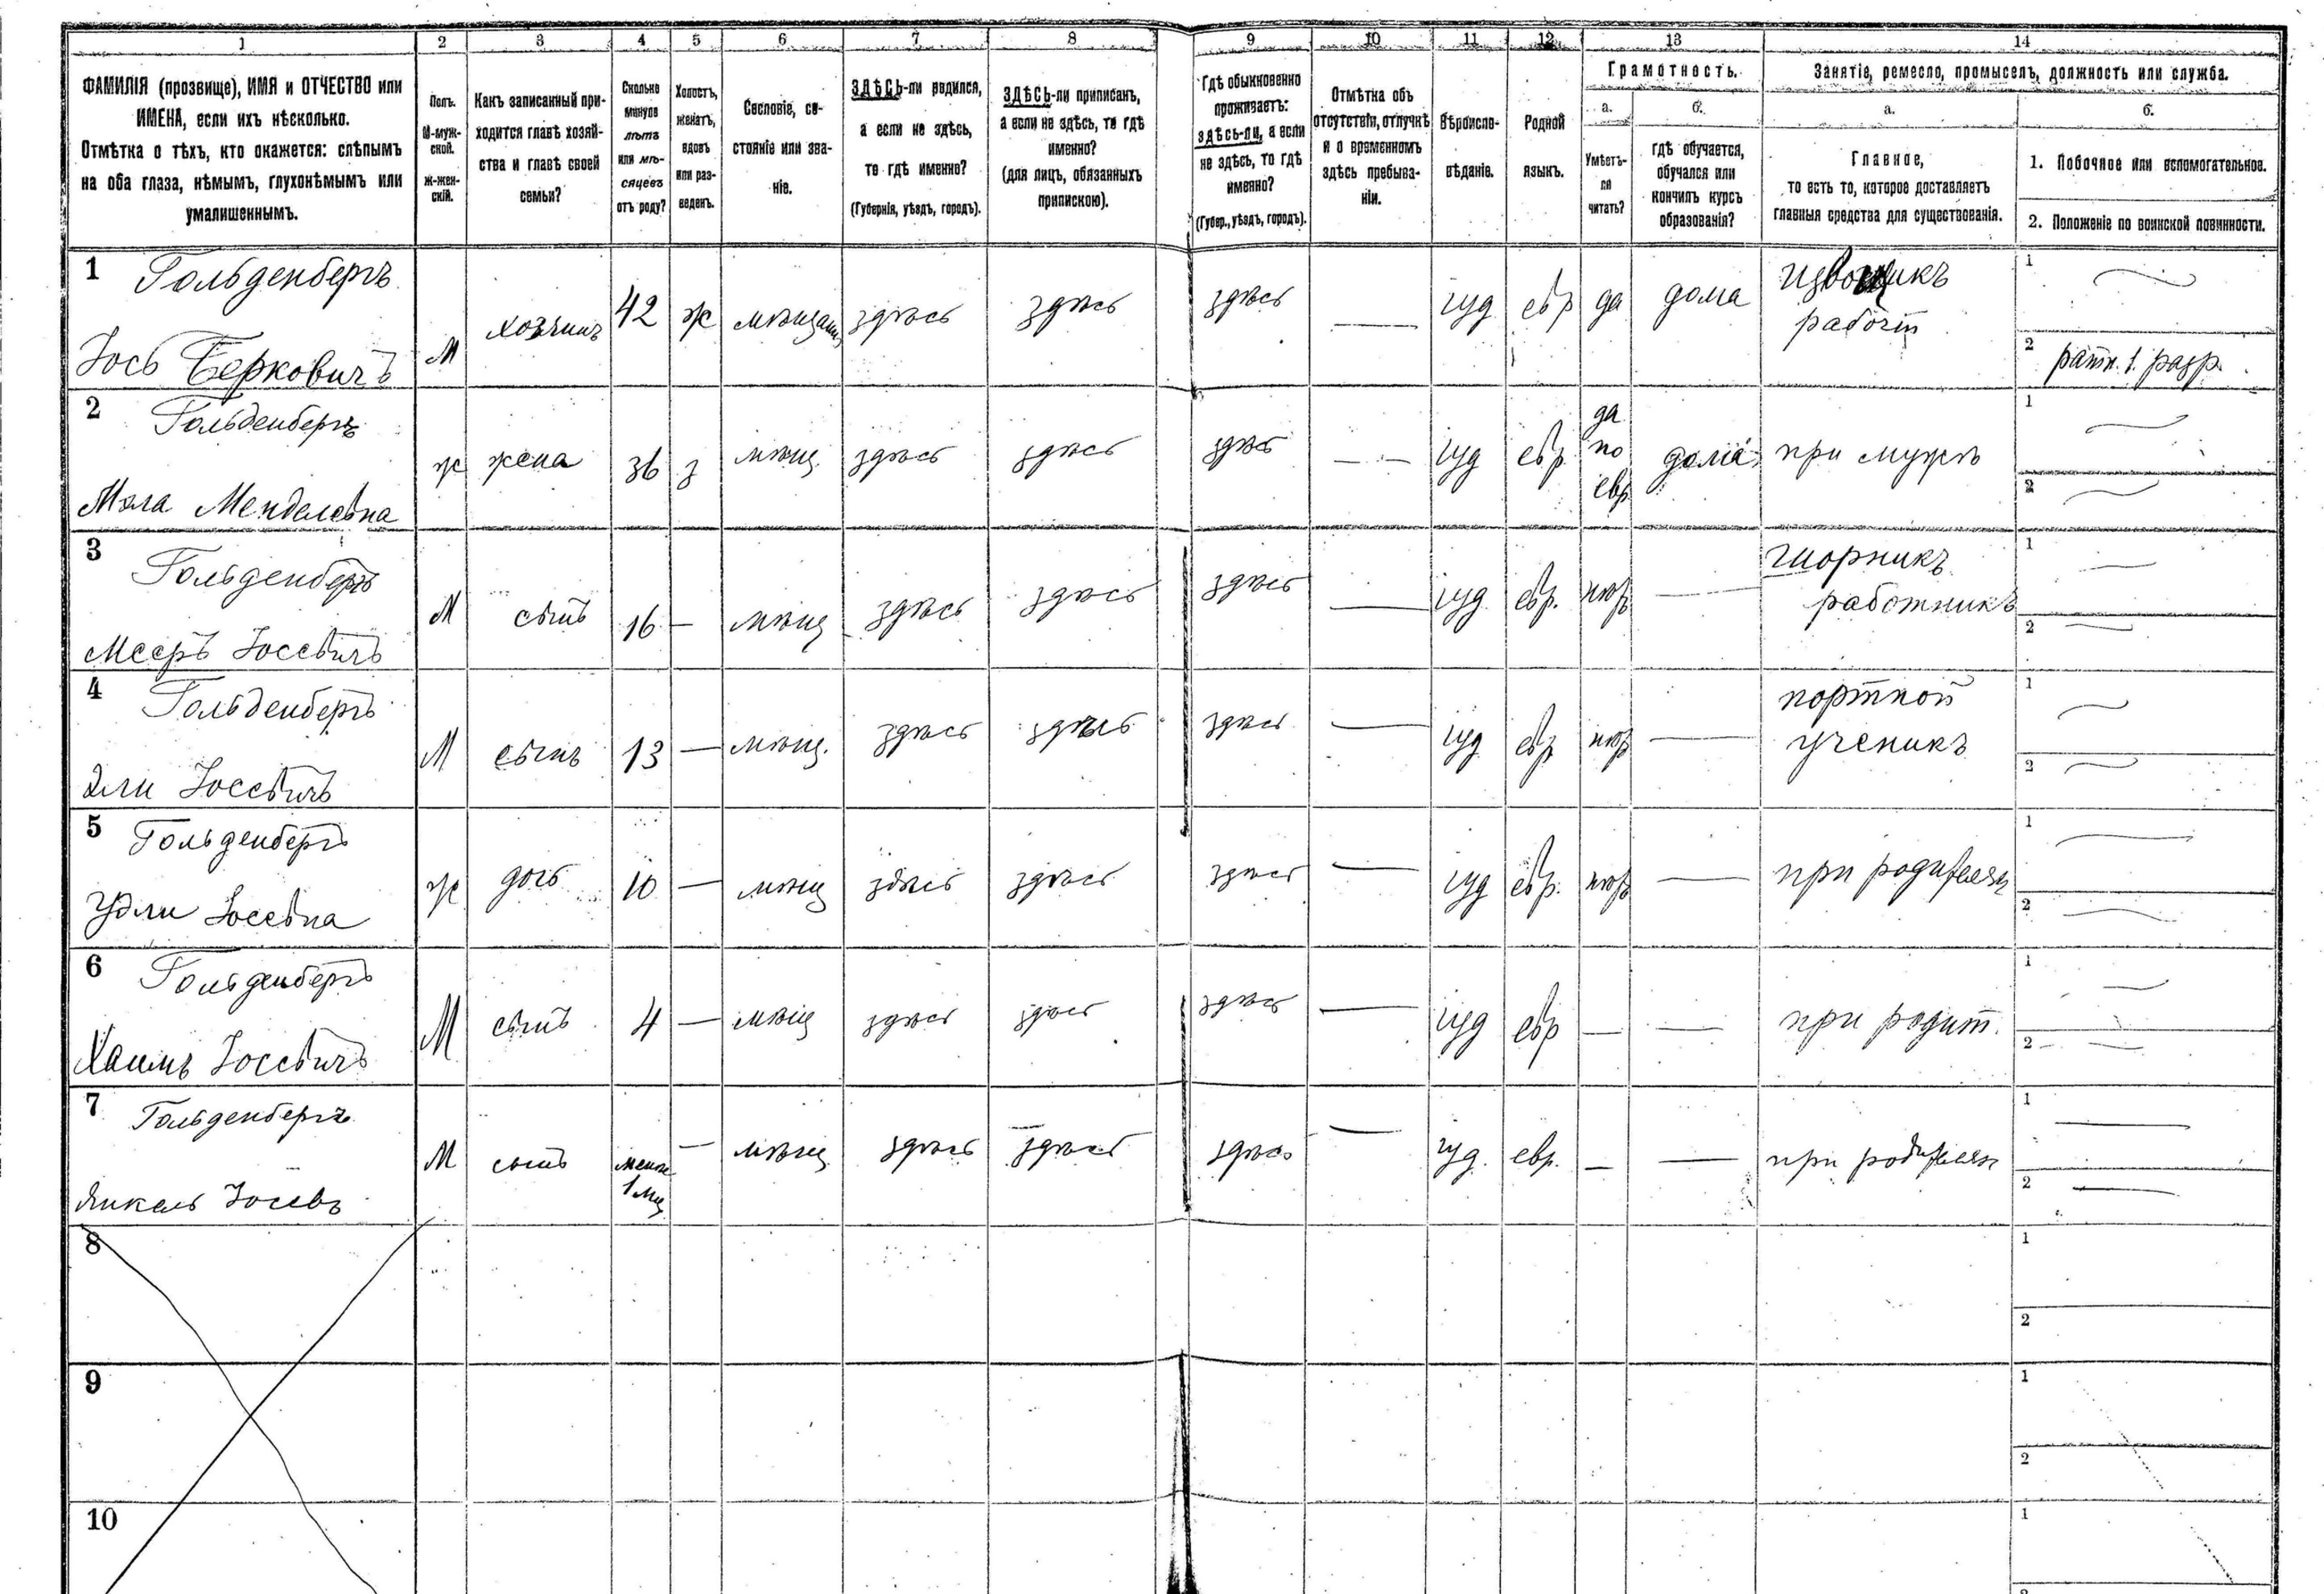 1 2 3 4 5 6 7 8 9 10 11 12 13 14
ФАМИЛІЯ (прозвище), ИМЯ и ОТЧЕСТВО или
ИМЕНА, если ихъ нѣсколько.
Отмѣтка о тѣхъ, кто окажется: слѣпымъ
на оба глаза, нѣмымъ, глухонѣмымъ или
умалишеннымъ.
Полъ.
М-муж-
ской.
ж-жен-
скій.
Какъ записанный при-
ходится главѣ хозяй-
ства и главѣ своей
семьи?
Сколько
минуло
лѣтъ
или мѣ-
сяцевъ
отъ роду?
Холостъ,
женатъ,
вдовъ
или раз-
веденъ.
Сословіе, со-
стояніе или зва-
ніе.
ЗДѢСЬ-ли родился,
а если не здѣсь,
то гдѣ именно?
(Губернія, уѣздъ, городъ).
ЗДѢСЬ-ли приписанъ,
а если не здѣсь, то гдѣ
именно?
(для лицъ, обязанныхъ
припискою).
Гдѣ обыкновенно
проживаетъ:
здѣсь-ли, а если
не здѣсь, то гдѣ
именно?
(Губер., уѣздъ, городъ).
Отмѣтка объ
отсутствіи, отлучкѣ
и о временномъ
здѣсь пребыва-
ніи.
Вѣроиспо-
вѣданіе.
Родной
языкъ.
Грамотность.
а.
Умѣетъ-
ли
читать?
б.
гдѣ обучается,
обучался или
кончилъ курсъ
образованія?
Занятіе, ремесло, промыселъ, должность или служба.
а.
Главное,
то есть то, которое доставляетъ
главныя средства для существованія.
б.
1. Побочное или вспомогательное.
2. Положеніе по воинской повинности.
1 Гольденбергъ
Іось Берковичъ
М хозяинъ 42 ж мѣщанин здѣсь здѣсь здѣсь — іуд евр да дома
извощикъ
рабочій
1
2 ратн. 1. разр.
2 Гольденбергъ
Мэла Менделевна
ж жена 36 з мѣщ. здѣсь здѣсь здѣсь — — іуд евр
да
по
евр
дома при мужѣ
1
2
3 Гольденбергъ
Мееръ Іосевичъ
М сынъ 16 — мѣщ здѣсь здѣсь здѣсь — іуд евр. —
шорникъ
работникъ
1
2
4 Гольденбергъ
Эли Іосевичъ
М сынъ 13 — мѣщ. здѣсь здѣсь здѣсь — іуд евр —
портной
ученикъ
1
2
5 Гольденбергъ
Удли Іосевна
ж дочь 10 — мѣщ здѣсь здѣсь здѣсь — іуд евр. — при родителях
1
2
6 Гольденбергъ
Хаимъ Іосевичъ
М сынъ 4 — мѣщ здѣсь здѣсь здѣсь — іуд евр — — при родит.
1
2
7 Гольденбергъ
Янкель Іосевъ
М сынъ
менѣе
1 мц
— мѣщ здѣсь здѣсь здѣсь — іуд. евр. — — при родителях
1
2
8
1
2
9
1
2
10
1